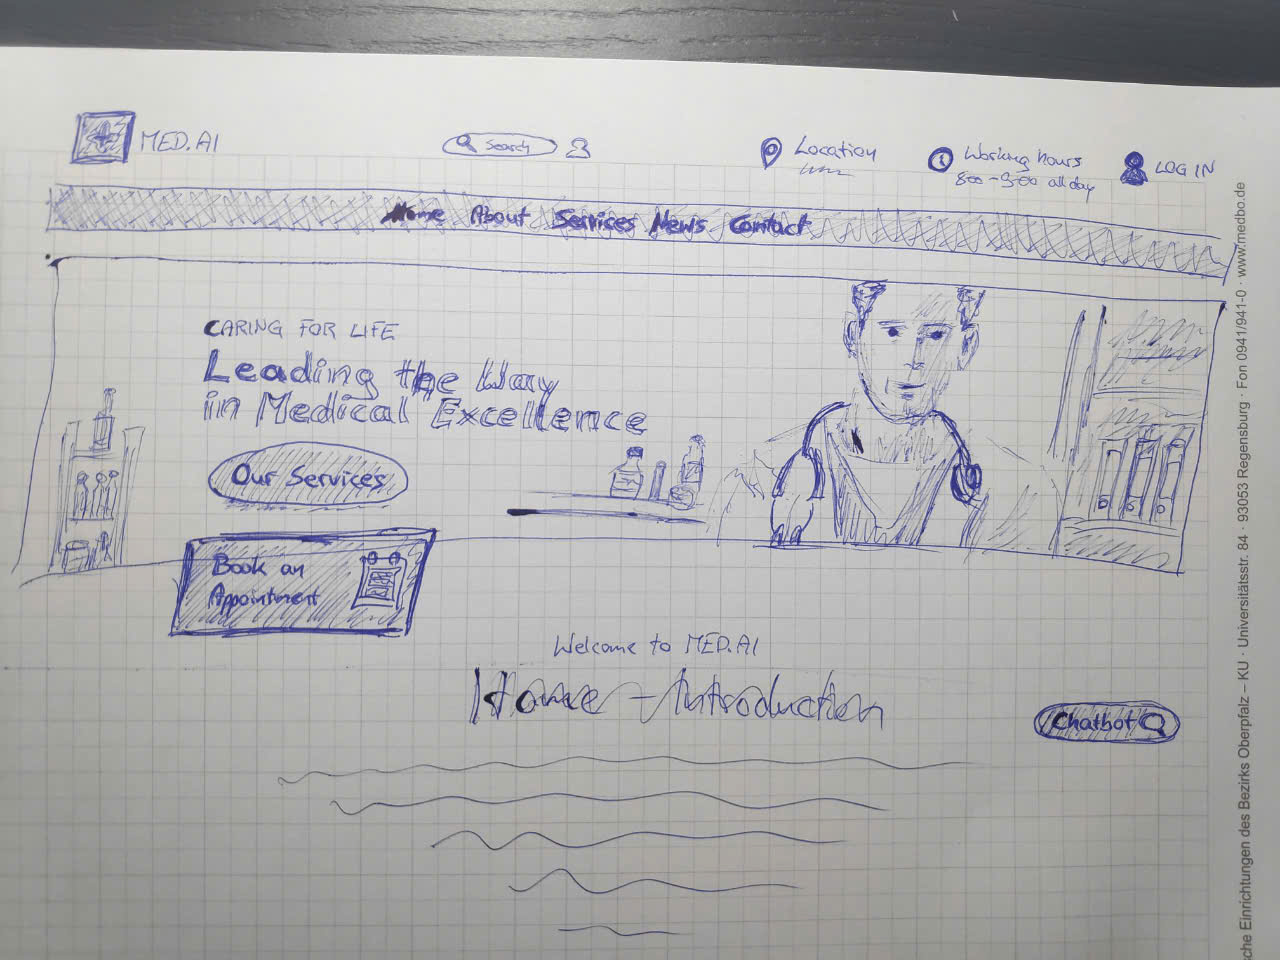 MED.AI
Search
Location
Working hours
8:00 - 9:00 all day
LOG IN
Home About Services News Contact
CARING FOR LIFE
Leading the Way
in Medical Excellence
Our Services
Book an
Appointment
Welcome to MED.AI
Home - Introduction
Chatbot
che Einrichtungen des Bezirks Oberpfalz – KU · Universitätsstr. 84 · 93053 Regensburg · Fon 0941/941-0 · www.medbo.de